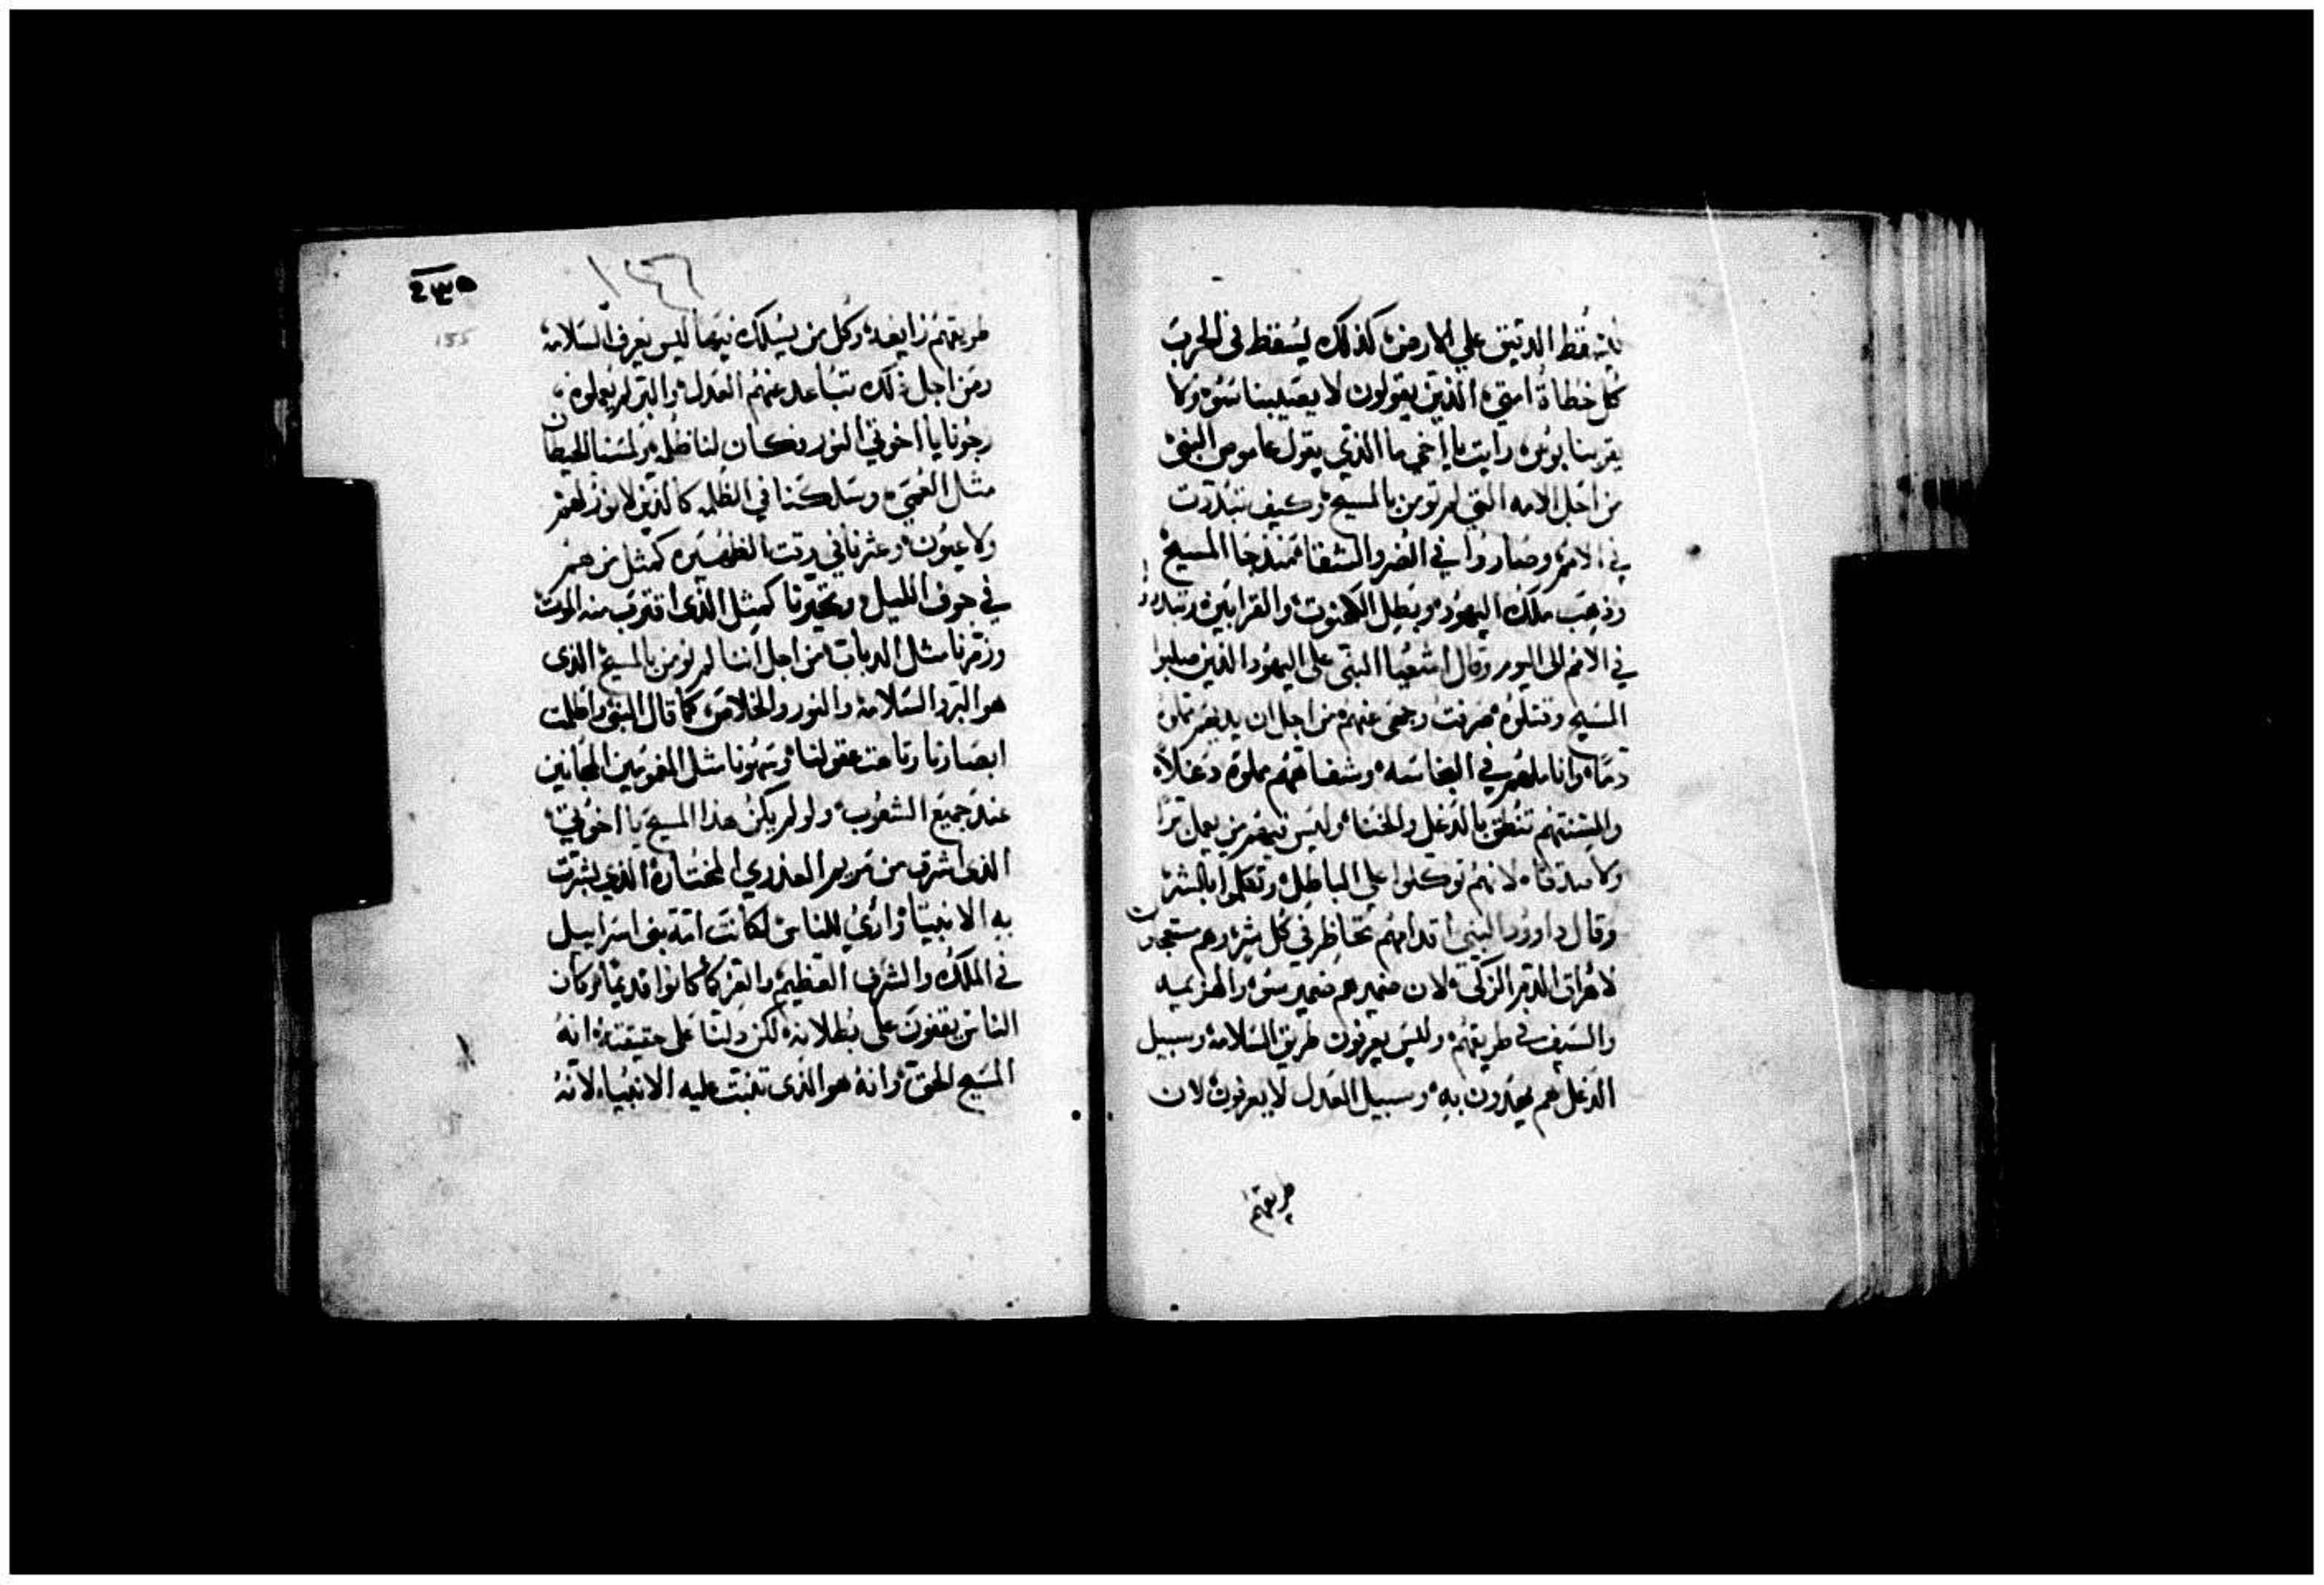 يسقط الدقيق علي الارض، كذلك يسقط في الحرب
كل خطاة امتي، الذين يقولون لا يصيبنا سَوْ ولا
يقربنا بوس، رايت يا اخي ما الذي يقول عاموص النبي
من اجل الامه التي لم تومن بالمسيح، وكيف تبددت
في الامم، وصاروا في الضر والشقا، منذ جا المسيح
وذهب ملك اليهود، وبطل الكهنوت، والقرابين، وتبددوا
في الامم الى اليوم، وقال اشعيا النبي على اليهود الذين صلبوا
المسيح وقتلوه، صرفت وجهى عنهم، من اجل ان يديهم مملوه
دمًا، واناملهم في النجاسه، وشفاههم مملوه دغلاً،
والسنتهم تنطق بالدغل والخنا، وليس فيهم من يعمل برًا
ولا صدقا، لانهم توكلوا علي الباطل، وتكلموا بالشر،
وقال داوود النبي، اقدامهم تحاظر في كل شر، وهم مستعجلون
لاهراق الدم الزكى، لان ضميرهم ضمير سو، والهزيميه
والسيف في طريقهم، وليس يعرفون طريق السلامه، وسبيل
الدغل هم يهدون به، وسبيل العدل لا يعرفون، لان
طريقهم
٢٣٥
١٢٦
155
طريقهم زايغه، وكل من يسلك فيها ليس يعرف السلامه،
ومن اجل ذلك تباعد عنهم العدل، والبر لم يعملوه،
رجونا يا اخوتي النور فكان لنا ظلمه، ولمسنا الحيطان
مثل العمي، وسلكنا في الظلمه كالذين لا نور لهم
ولا عيون، وعثرنا في وقت الظهيره كمثل من هم
في جوف الليل، وتحيرنا كمثل الذى اقترب منه الموت
وزمرنا مثل الدبات، من اجل اننا لم نومن بالمسيح الذى
هو البر والسلامه والنور والخلاص، كما قال النبي واظلمت
ابصارنا وتاهت عقولنا، وسهونا مثل المغويين المجانين
عند جميع الشعوب، ولو لم يكن هذا المسيح يا اخوتي،
الذى اشرق من مريم العذري المختاره الذي بشرت
به الانبيا، واري للناس، لكانت امة بنى اسراييل
في الملك والشرف العظيم والعز كما كانوا قديمًا، وكان
الناس يقفون على بطلانه، لكن دلتنا على حقيقته، انه
المسيح الحق، وانه هو الذى تنبت عليه الانبيا، لانه